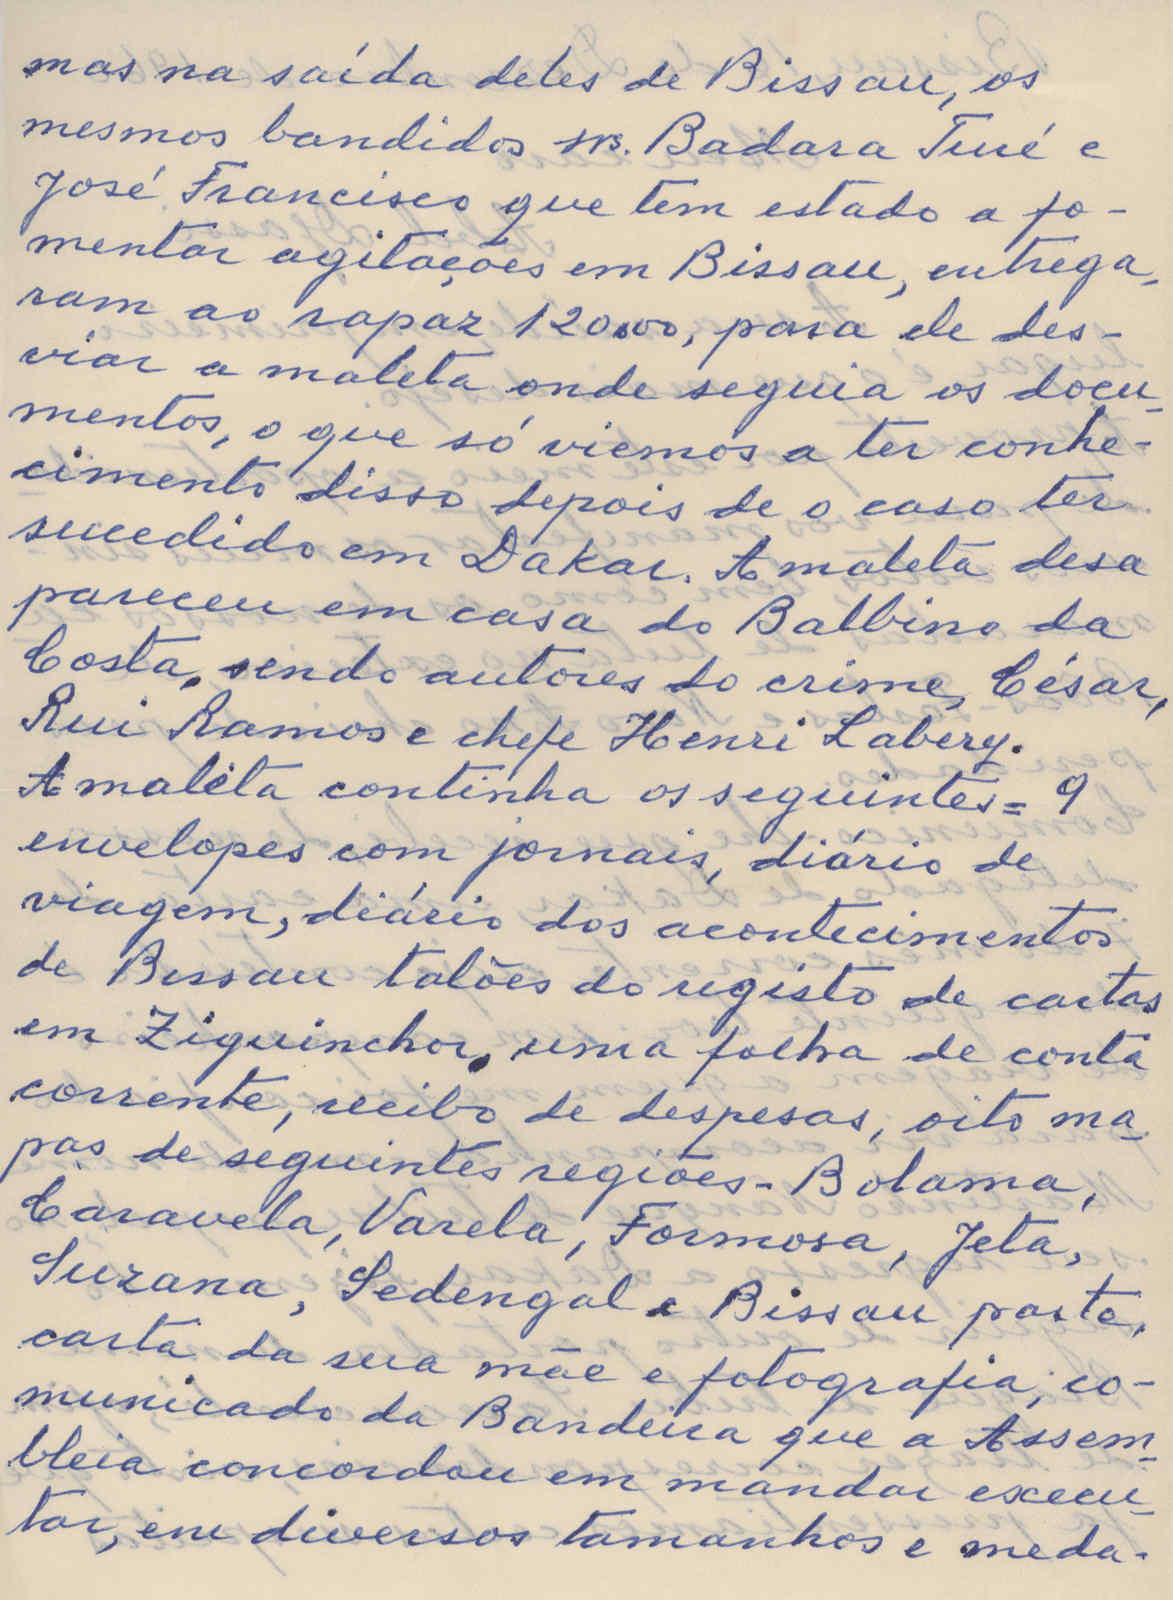 mas na saída deles de Bissau, os
mesmos bandidos srs. Badara Turé e
José Francisco que tem estado a fo-
mentar agitações em Bissau, entrega-
ram ao rapaz 120$00, para ele des-
viar a maleta onde seguia os docu-
mentos, o que só viemos a ter conhe-
cimento disso depois de o caso ter
sucedido em Dakar. A maleta desa
pareceu em casa do Balbino da
Costa, sendo autores do crime, César,
Rui Ramos e chefe Henri Labery.
A maleta continha os seguintes = 9
envelopes com jornais, diário de
viagem, diário dos acontecimentos
de Bissau talões do registo de cartas
em Ziguinchor, uma folha de conta
corrente, recibo de despesas, oito ma-
pas de seguintes regiões - Bolama,
Caravela, Varela, Formosa, Jeta,
Suzana, Sedengal e Bissau parte,
carta da sua mãe e fotografia, co-
municado da Bandeira que a Assem-
bleia concordou em mandar execu-
tar, em diversos tamanhos e meda-